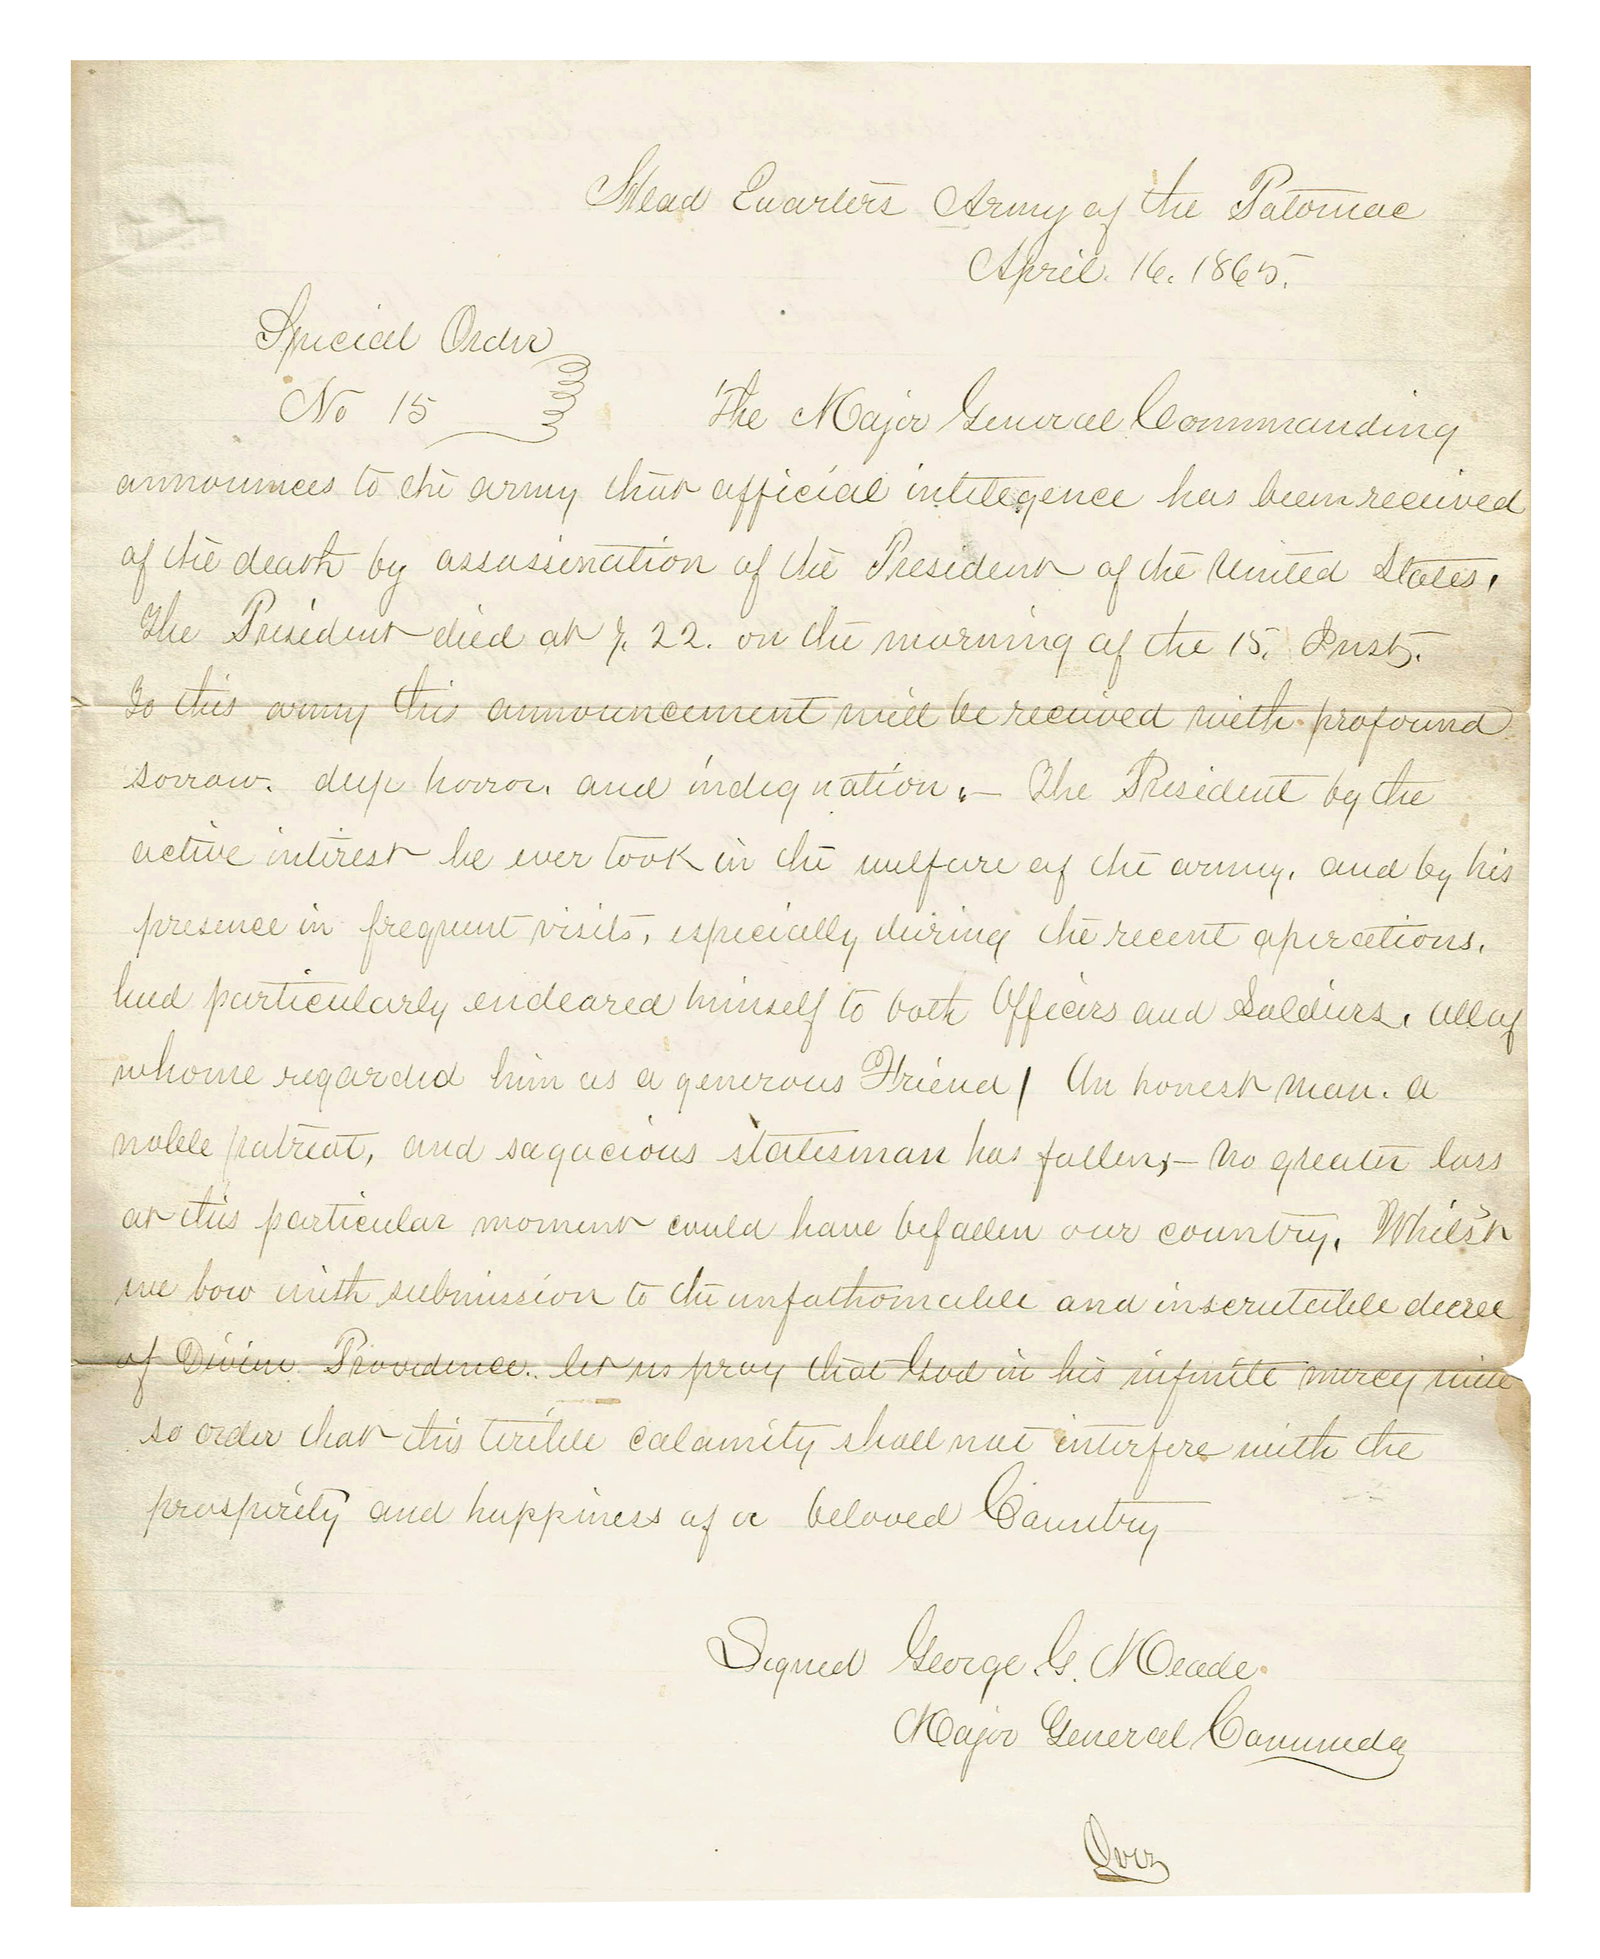 Head Quarters Army of the Potomac
April. 16. 1865.
Special Order
No 15
The Major General Commanding
announces to the army that official intelegence has been received
of the death by assassination of the President of the United States.
The President died at 7. 22. on the morning of the 15. Inst.
To this army this announcement will be received with profound
sorrow. deep horror. and indignation. — The President by the
active interest he ever took in the welfare of the army. and by his
presence in frequent visits, especially during the recent operations.
had particularly endeared himself to both Officers and Soldiers. all of
whome regarded him as a generous Friend / An honest man. a
noble patriot, and sagacious statesman has fallen, — No greater loss
at this particular moment could have befallen our country. Whilst
we bow with submission to the unfathomable and inscrutable decree
of Divine Providence. let us pray that God in his infinite mercy will
so order that this terible calamity shall not interfere with the
prosperity and happiness of a beloved Country
Signed George G. Meade.
Major General Commdg
Over